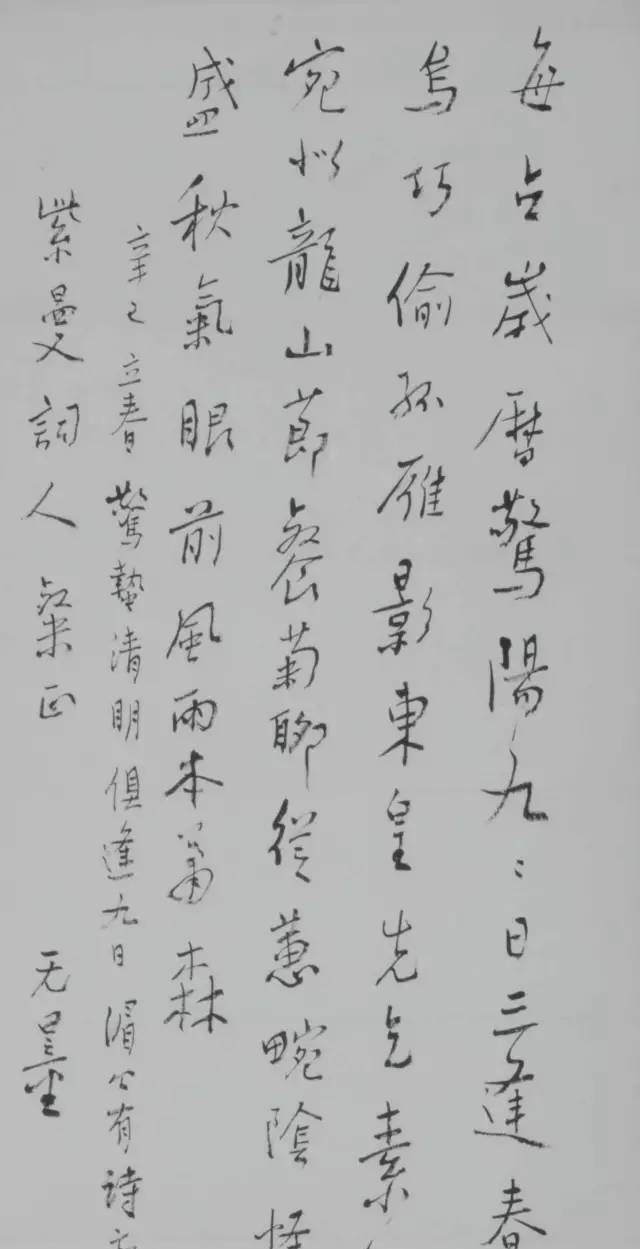 每占歲曆驚陽九〻日三逢春
烏巧偷孤雁影東皇先乞素
宛似龍山節餐菊聊從蕙畹陰怪
盛秋氣眼前風雨本蕭森
辛巳立春驚蟄清明俱逢九日 公有詩
紫曼詞人粲正 无量